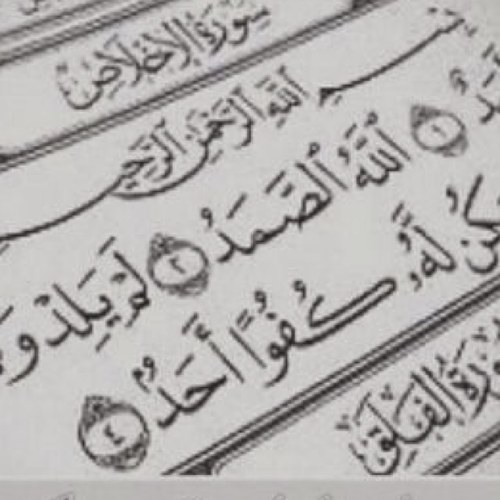 سورة الإخلاص
بسم الله الرحمن الرحيم
اللَّهُ الصَّمَدُ ٢ لَمْ يَلِدْ
لَّهُۥ كُفُوًا أَحَدٌۢ ٤
سورة الفلق